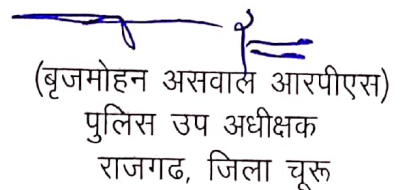 (बृजमोहन असवाल आरपीएस)
पुलिस उप अधीक्षक
राजगढ, जिला चूरू